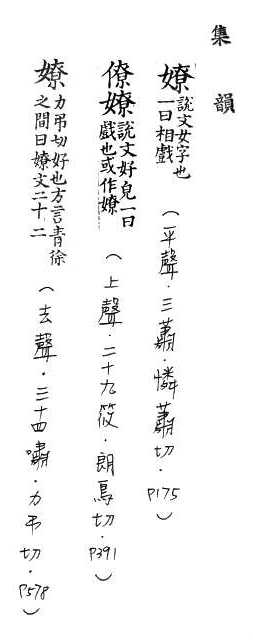 集韻
嫽 說文女字也一曰相戲(平聲.三蕭.憐蕭切.P175)
僚嫽 說文好皃一曰戲也或作嫽(上聲.二十九筱.朗鳥切.P391)
嫽 力弔切好也方言青徐之間曰嫽文二十二(去聲.三十四嘯.力弔切.P578)